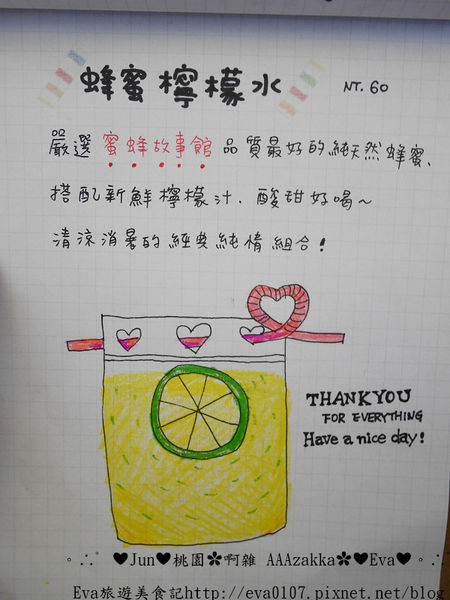 蜂蜜檸檬水 NT. 60
嚴選 蜜蜂故事館 品質最好的純天然蜂蜜、
搭配新鮮檸檬汁. 酸甜好喝~
清涼消暑的經典純情組合!
THANKYOU
FOR EVERYTHING
Have a nice day!
。∴° ♥Jun♥桃園✽啊雜 AAAzakka✽♥Eva♥。∴
Eva旅遊美食記http://eva0107.pixnet.net/blog